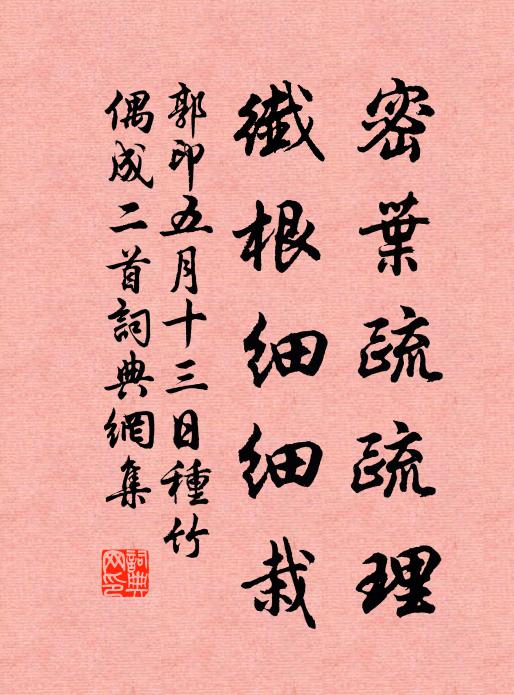 密葉疏疏理
纖根細細栽
郭印五月十三日種竹
偶成二首詞典網集
詞典
网印